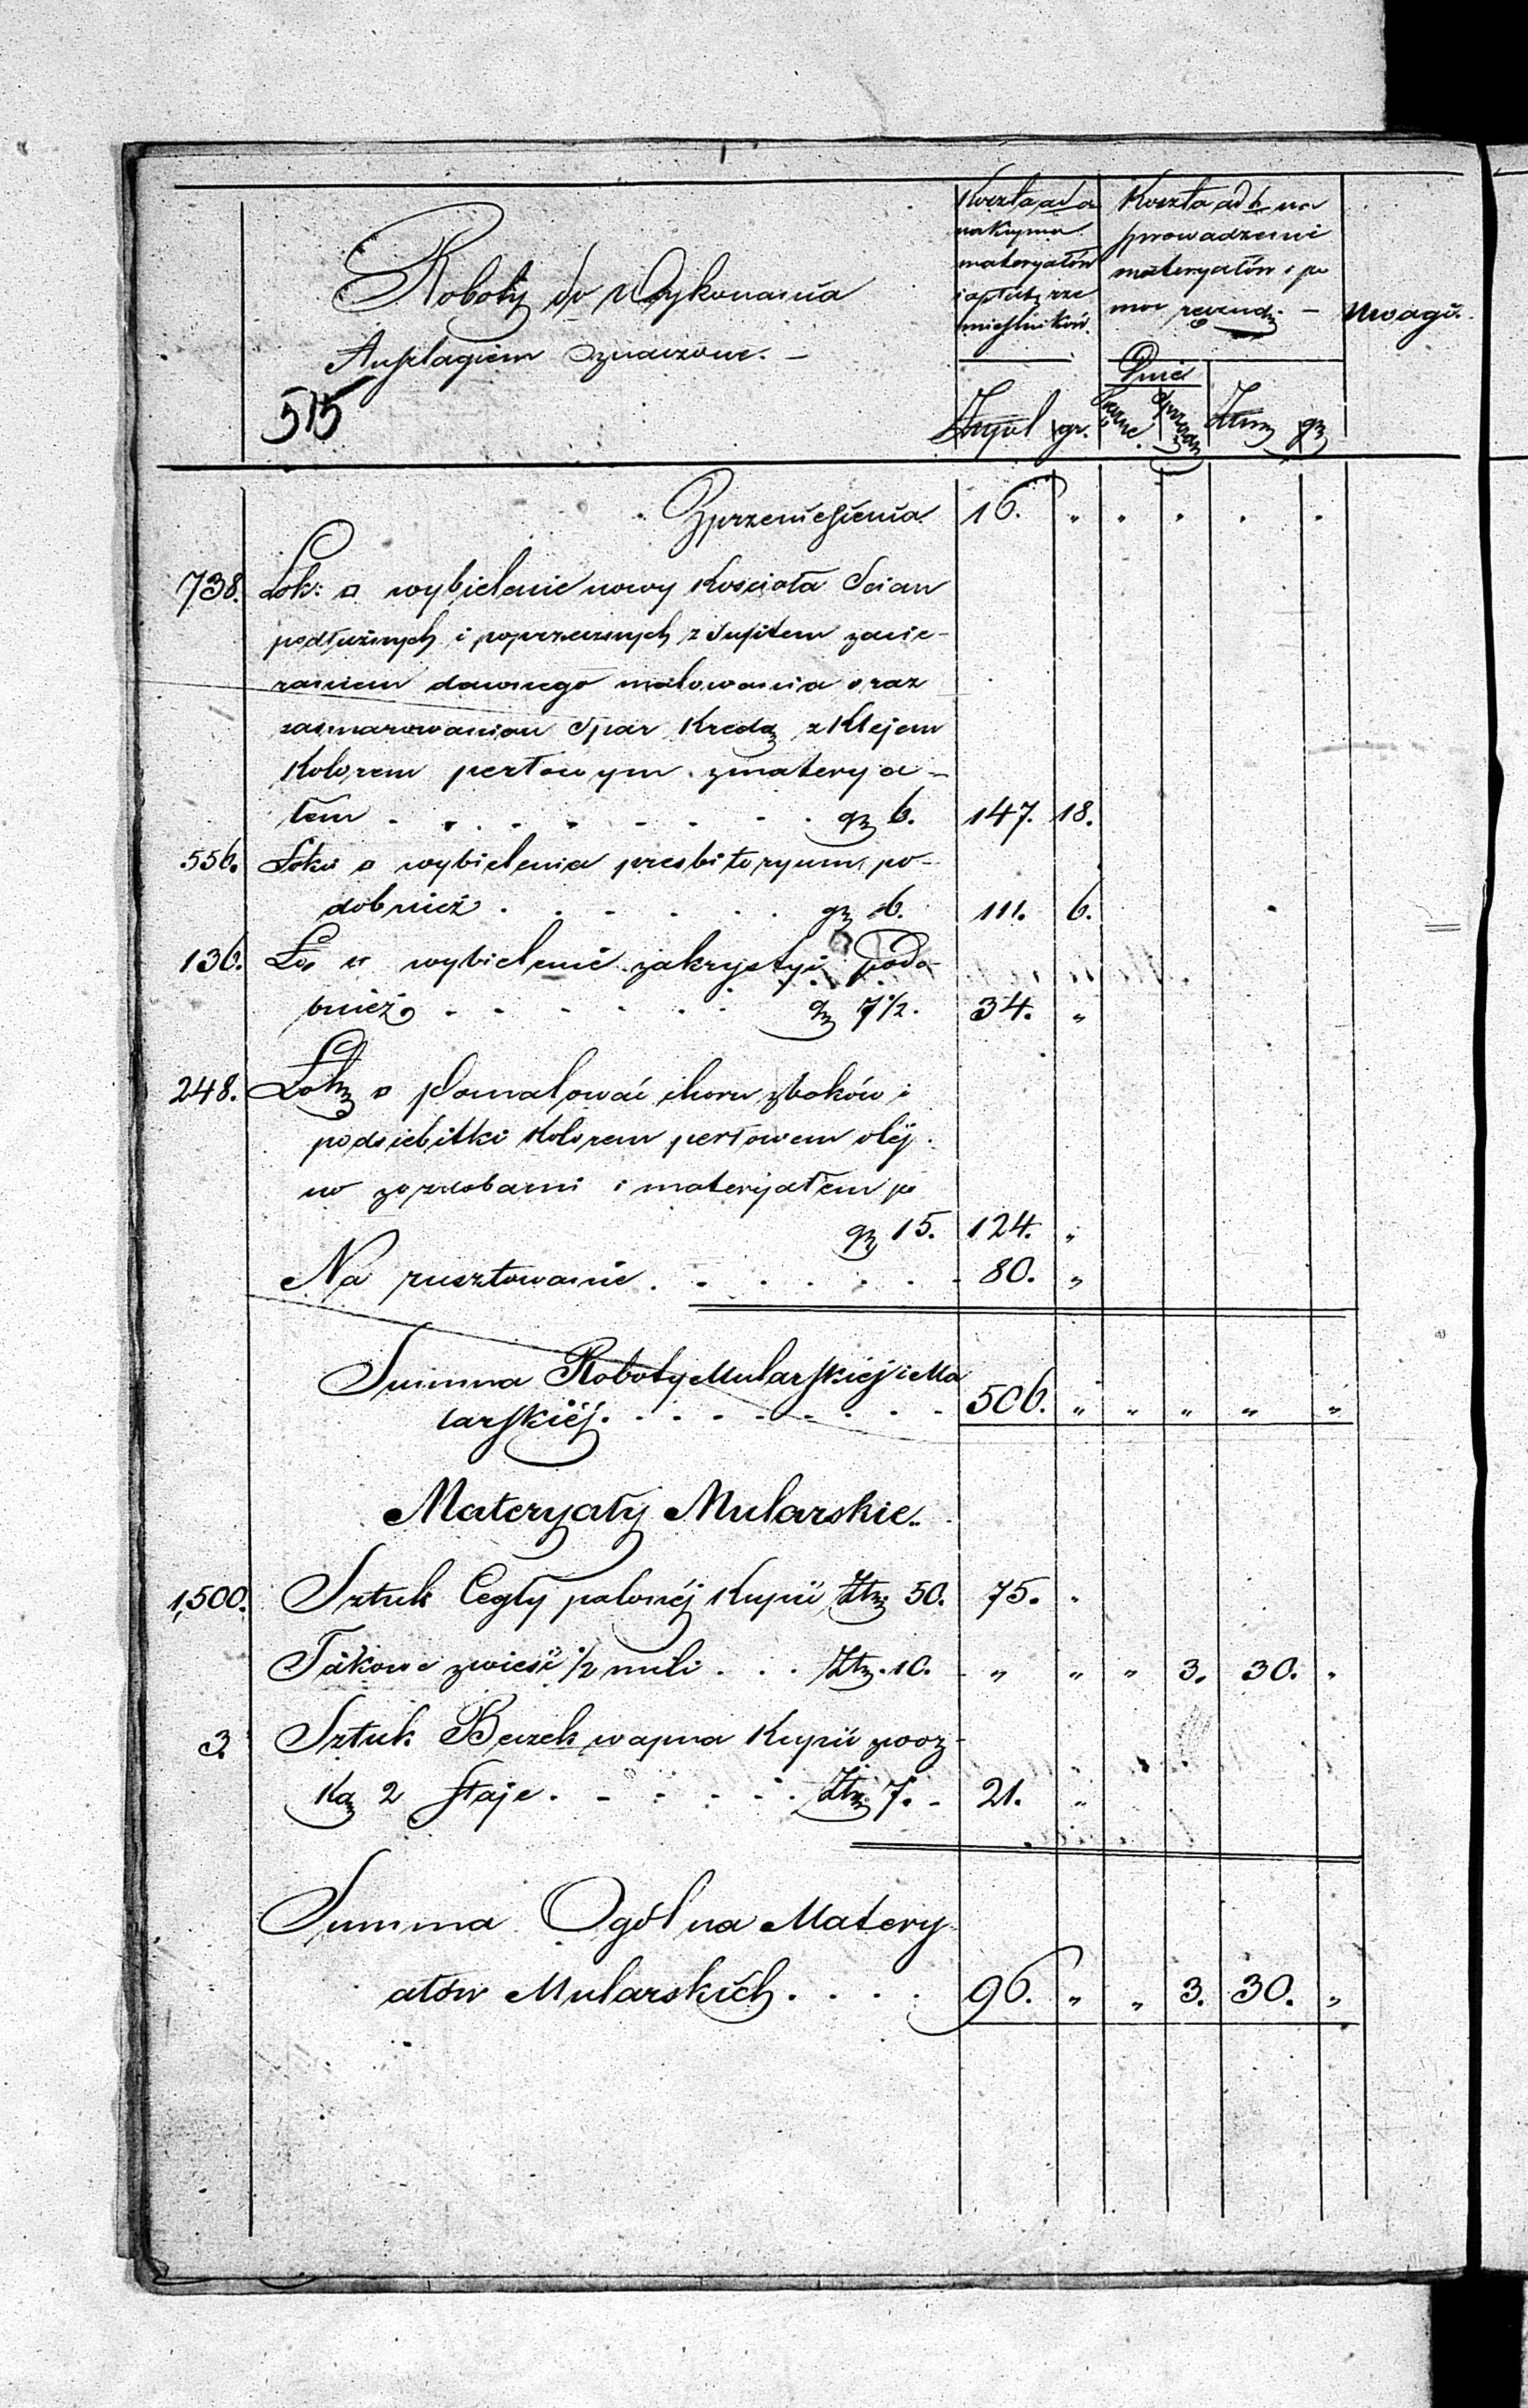 Roboty do Wykonania
Anszlagiem Oznaczone. –
515
Koszta ad a
nakupna
materyałów
i opłaty rze
mieślników.
Koszta ad b na
prowadzenie
materyałów i po
moc
Uwagi.
Dnie
Złtpol gr.
piesze. sprzęż. Złtp gr
Zprzeniesienia 16. " " " " "
738. Łok: □ wybielenie nowy Kościoła Scian
podłużnych i poprzecznych z Sufitem zacie-
raniem dawnego malowania oraz
zasmarowaniem Spar Kredą z Klejem
Kolorem perłowym zmaterya-
łem . . . . . . . gr 6. 147. 18.
556. Łokci □ wybielenia presbiteryum po-
dobnież . . . . . . gr 6. 111. 6.
136. Ło □ wybielenie zakrystyi podo-
bnież . . . . . . gr 7½. 34. "
248. Łok □ Pomalować choru zboków i
podsiebitki Kolorem perłowem olej
no zozdobami i materyałem po
gr 15. 124. "
Na rusztowanie . . . . . . 80. "
Summa Roboty Mularskiej i Ma
larskiéj . . . . . . . . 506. " " " " "
Materyały Mularskie.
1,500. Sztuk Cegły palonéj Kupić Złtp 50. 75. "
Takowe zwieść ½ mili . . . Złtp. 10. " " " 3. 30. "
3. Sztuk Beczek wapna Kupić zwoz-
Ką 2 Staje . . . . . . Złtp. 7. 21. "
Summa Ogólna Matery
ałów Mularskich . . . . 96. " " 3. 30. "